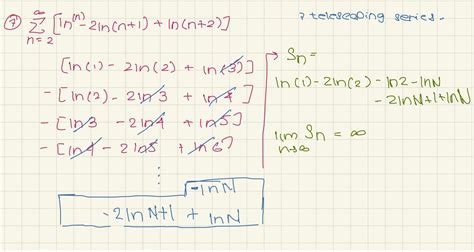 ⑦ ∞ Σ n=2 [ln(n) - 2ln(n+1) + ln(n+2)]
? telescoping series.
[ln(1) - 2ln(2) + ln(3)]
- [ln(2) - 2ln3 + ln4]
- [ln3 - 2ln4 + ln5]
- [ln4 - 2ln5 + ln6]
⋮
-lnN
-2lnN+1 + lnN
→ Sn =
ln(1) - 2ln(2) - ln2 - lnN
- 2lnN+1 + lnN
lim Sn = ∞
n→∞